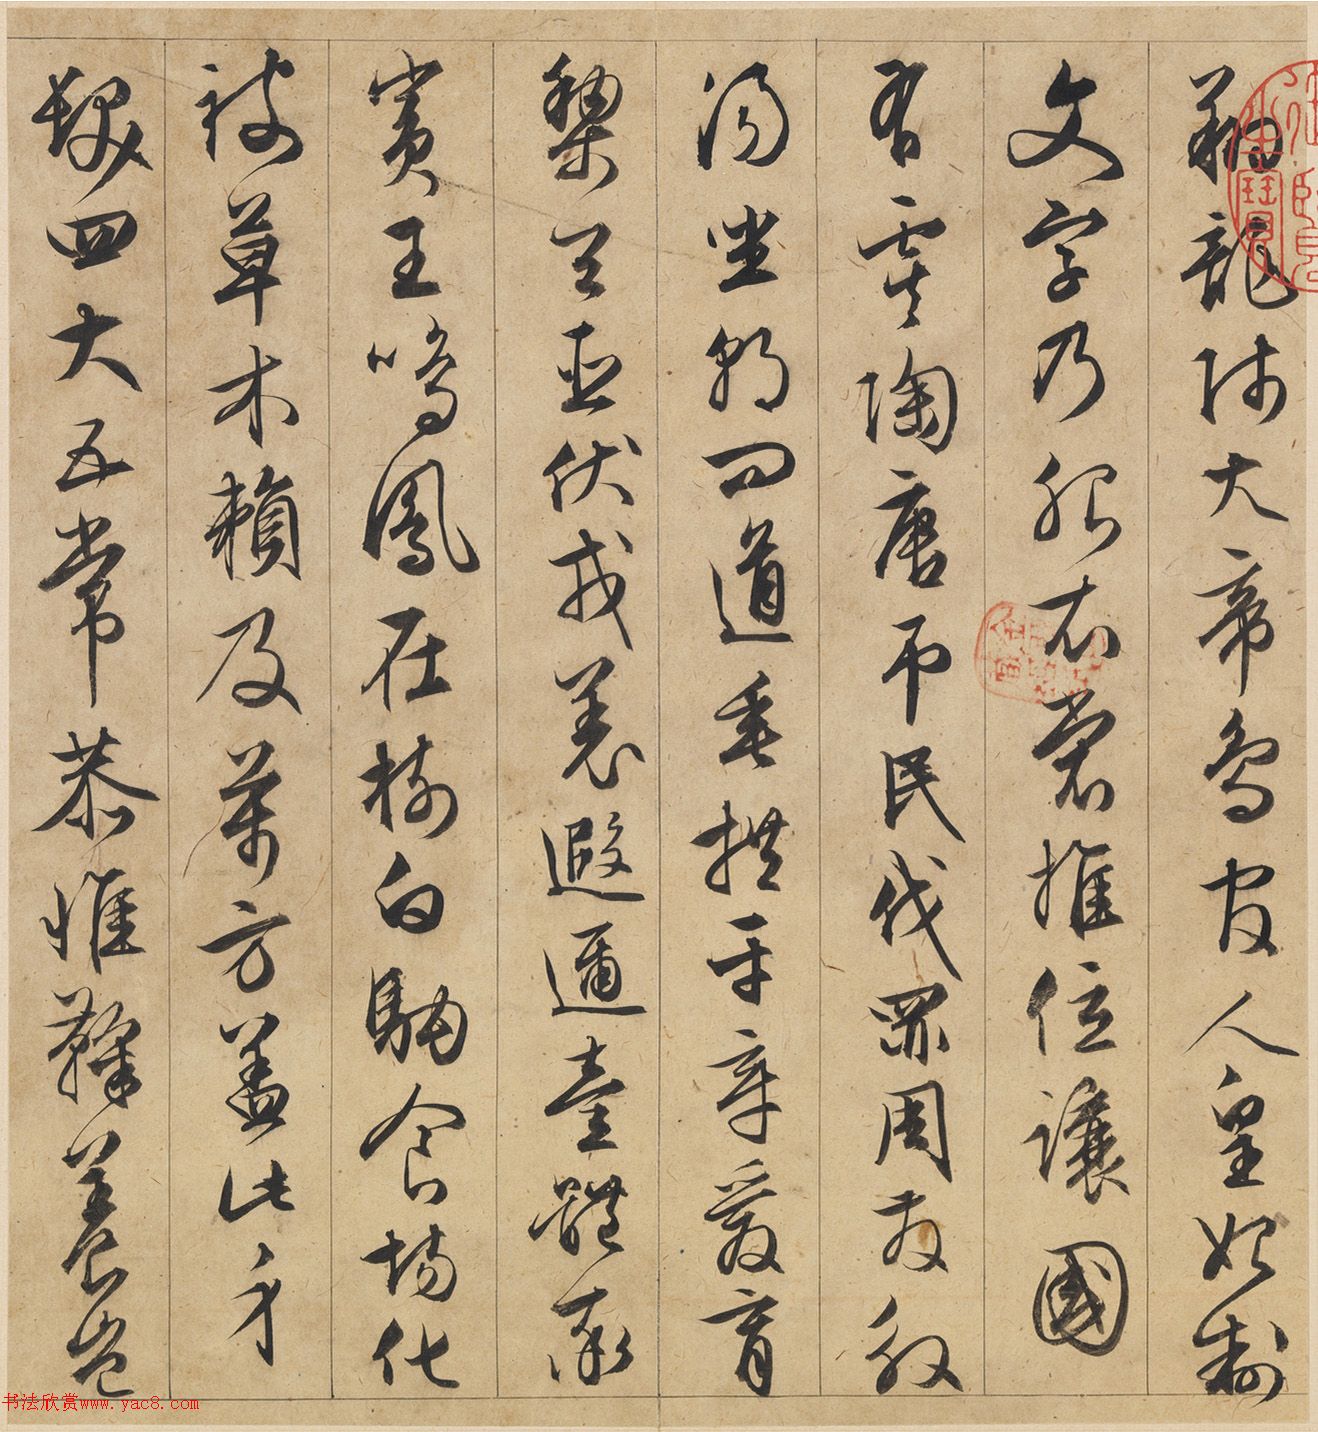 翔龍師火帝鳥官人皇始制
文字乃服衣裳推位讓國
有虞陶唐弔民伐罪周發殷
湯坐朝問道垂拱平章愛育
黎首臣伏戎羌遐邇壹體率
賓王鳴鳳在樹白駒食場化
被草木賴及萬方蓋此身
髮四大五常恭惟鞠養豈
书法欣赏www.yac8.com